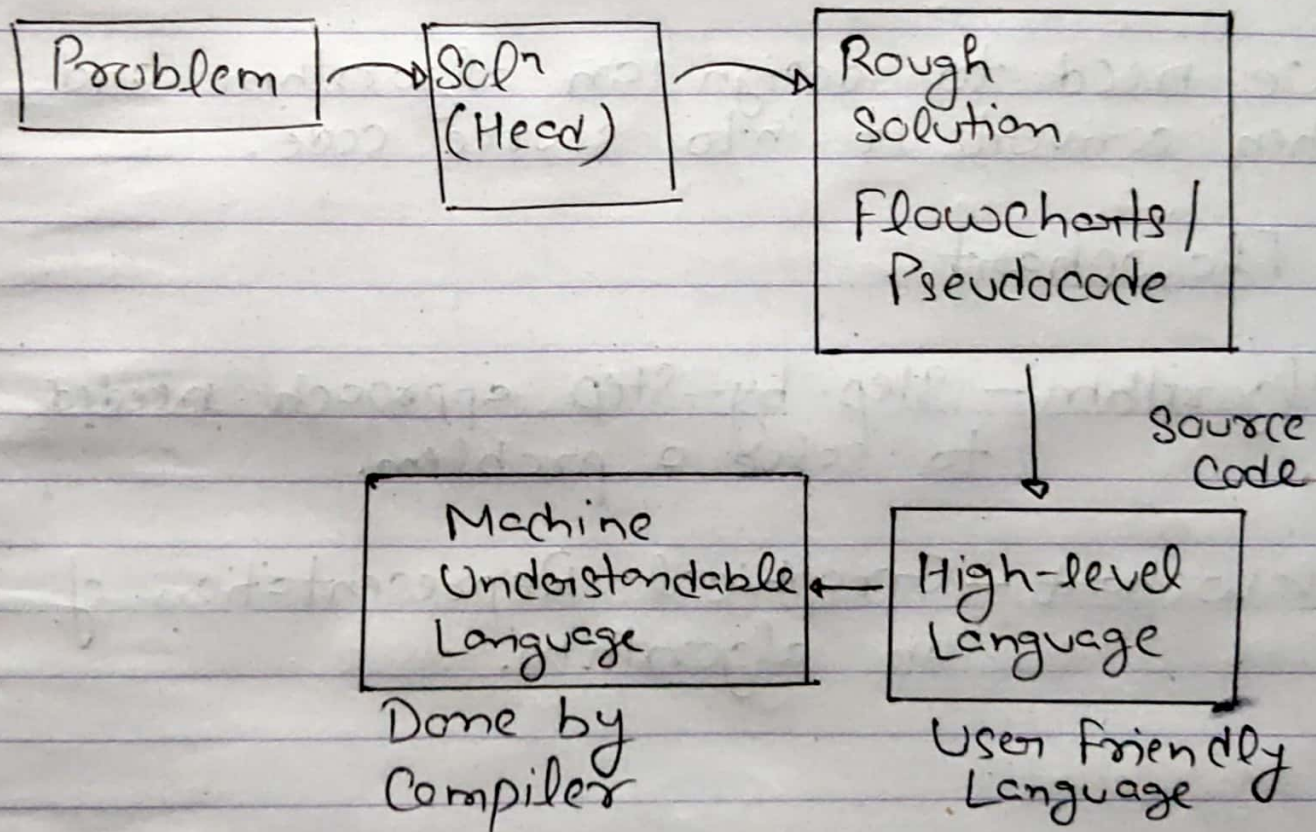 Problem
Soln
(Head)
Rough
Solution
Flowcharts/
Pseudocode
Source
Code
High-level
Language
User Friendly
Language
Machine
Understandable
Language
Done by
Compiler